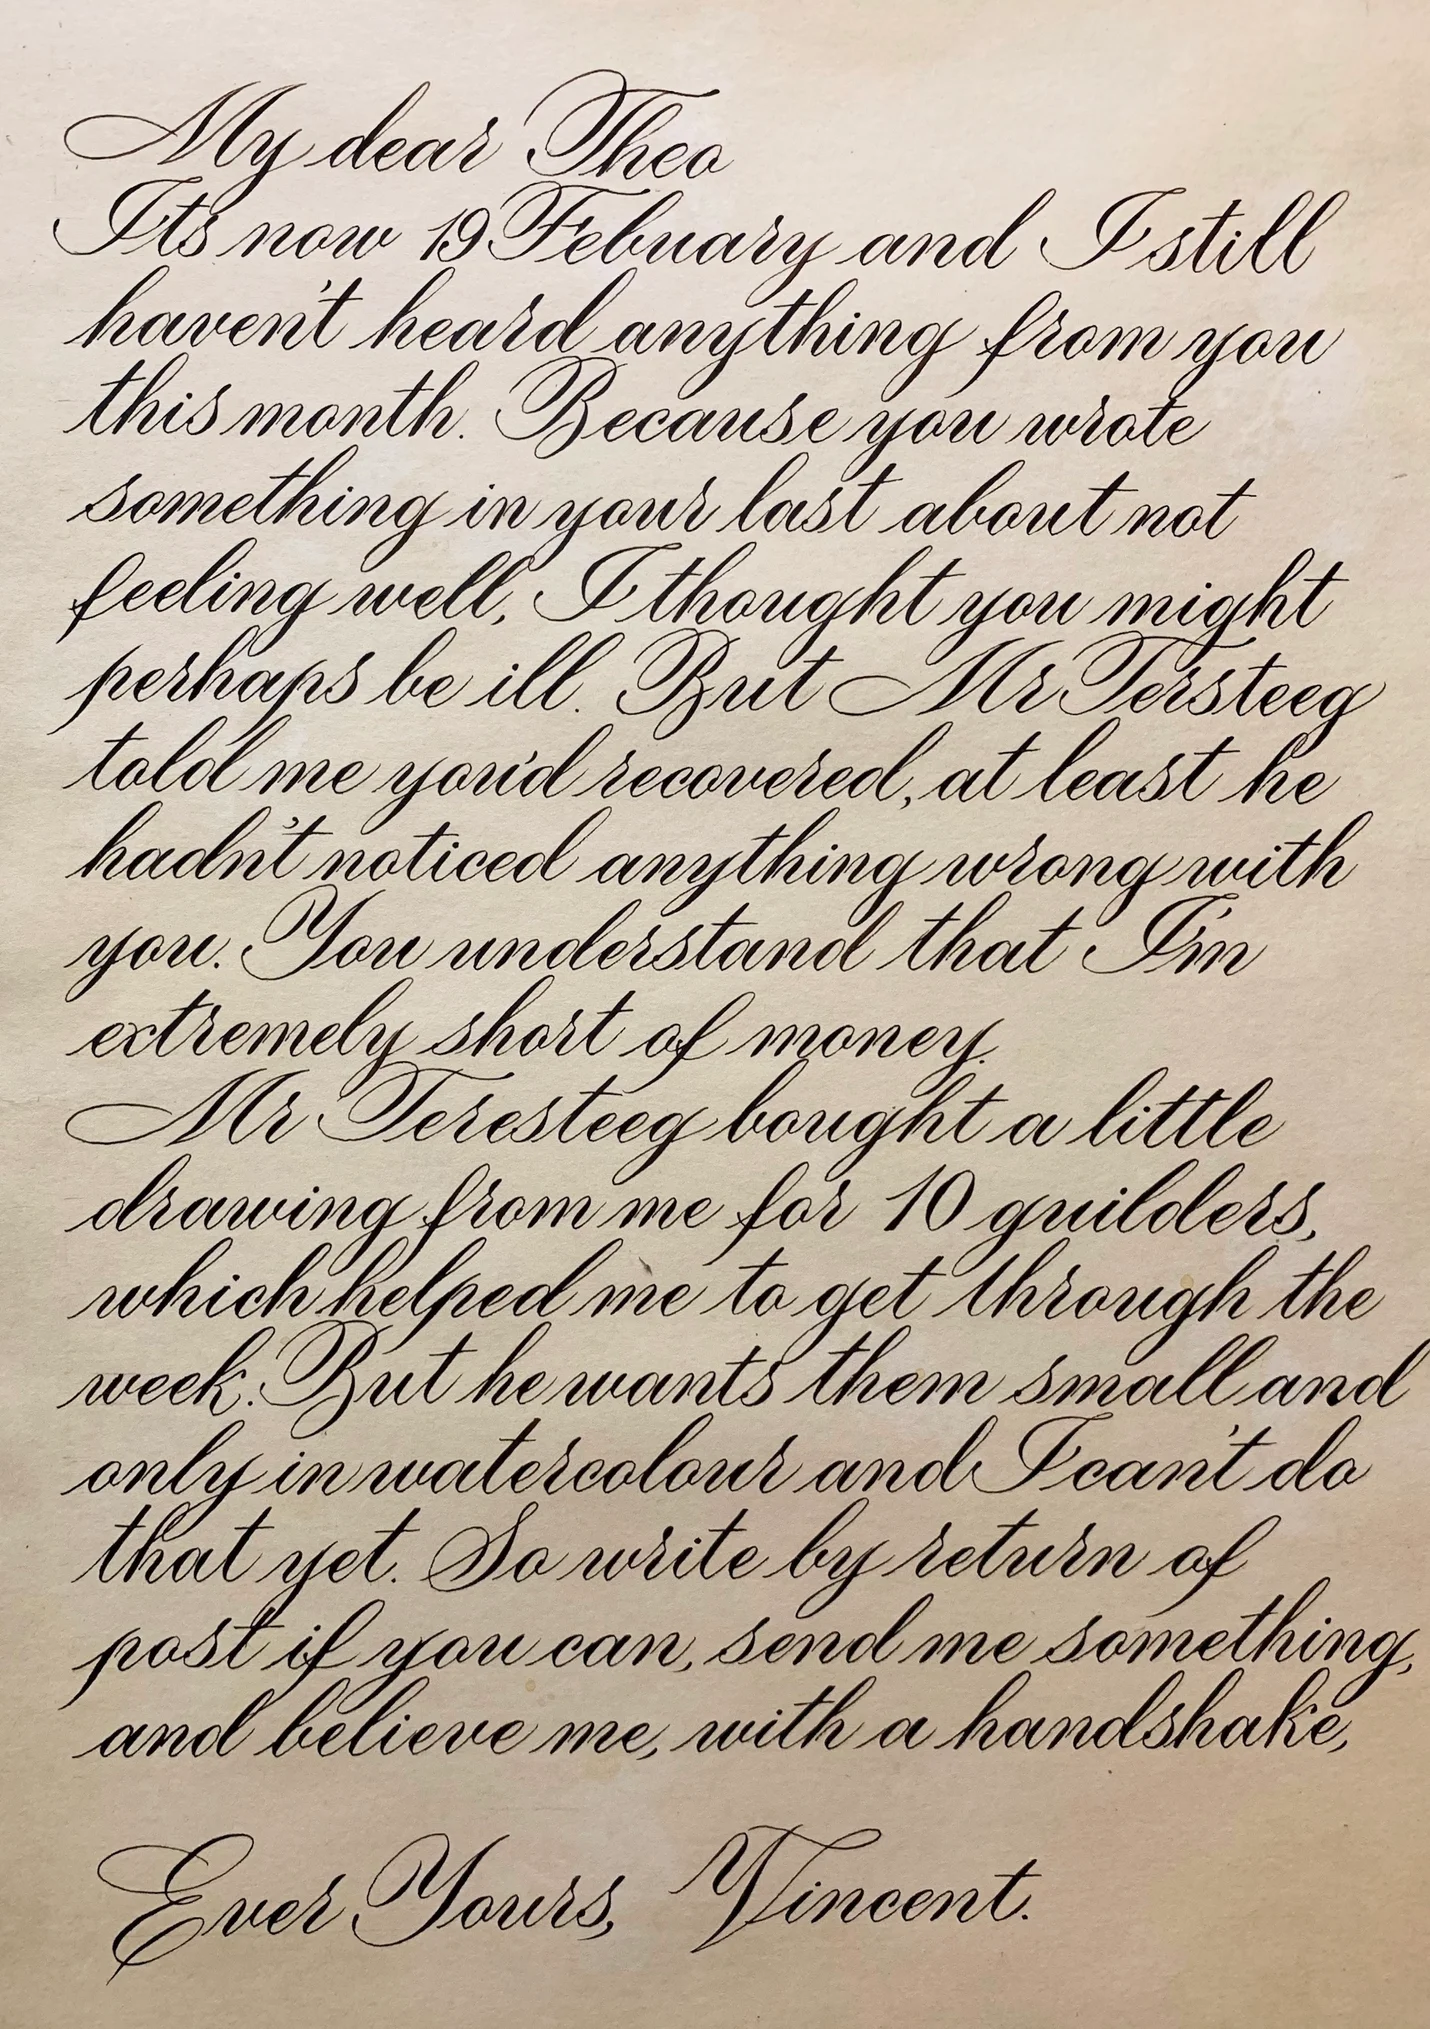 My dear Theo
Its now 19 Febuary and I still
haven't heard anything from you
this month. Because you wrote
something in your last about not
feeling well, I thought you might
perhaps be ill. But Mr Tersteeg
told me you'd recovered, at least he
hadn't noticed anything wrong with
you. You understand that I'm
extremely short of money.
Mr Teresteeg bought a little
drawing from me for 10 guilders,
which helped me to get through the
week. But he wants them small and
only in watercolour and I can't do
that yet. So write by return of
post if you can, send me something,
and believe me, with a handshake,
Ever Yours, Vincent.